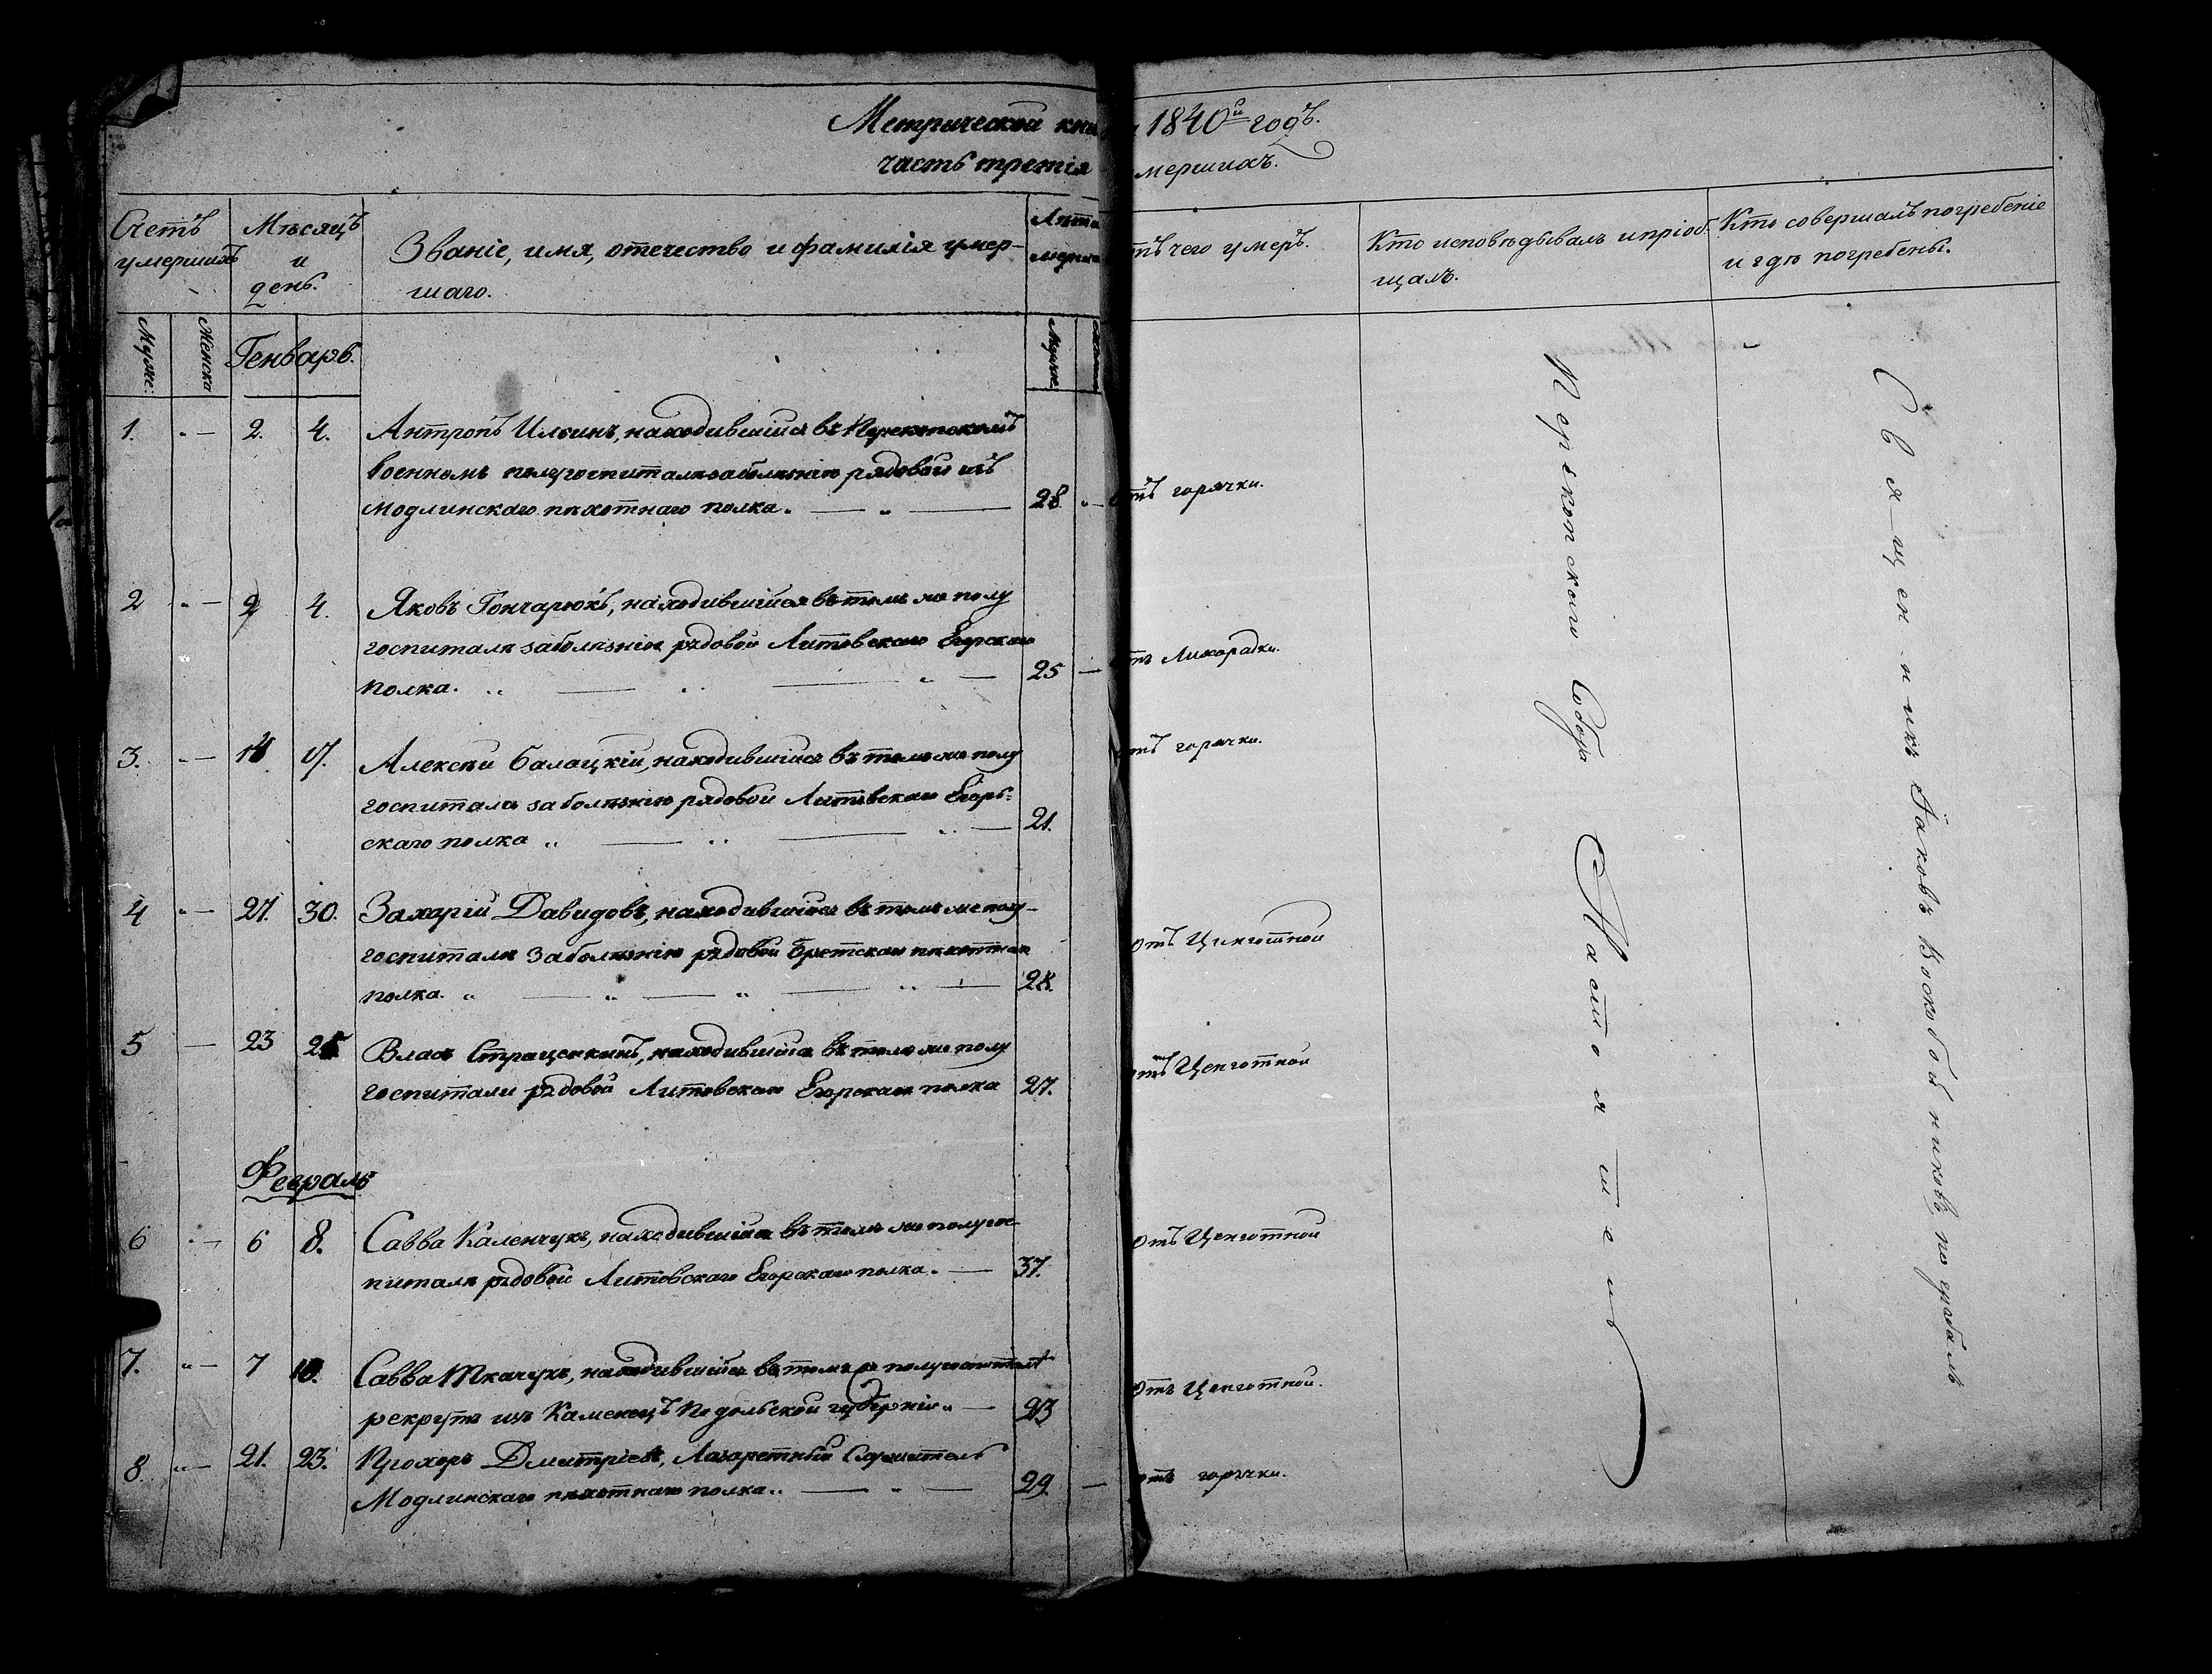 Метрической кни 1840й годъ.
часть третія мершихъ.
Счетъ умершихъ
Мѣсяцъ и день.
Званіе, имя, отечество и фамилія умер-
шаго.
Лѣта
тъ чего умеръ.
Кто исповѣдывалъ и пріоб-
щалъ.
Кто совершалъ погребеніе
и гдѣ погребены.
Муже:
Женска
Генварь.
Муже.
1. 2. 4. Антропъ Ильинъ, находившійся въ Перекопскомъ
военномъ полугоспиталѣ за болѣзнію рядовой изъ
Модлинскаго пѣхотнаго полка. 28. Отъ горячки.
2 2 4. Яковъ Гончарюкъ, находившійся въ томъ же полу
госпиталѣ за болѣзнію рядовой Литовскаго Егерскаго
полка. 25 Отъ Лихорадки.
3. 14 17. Алексѣй Балацкій, находившійся въ томъ же полу
госпиталѣ за болѣзнію рядовой Литовскаго Егерь-
скаго полка 21. Отъ горячки.
4 27. 30. Захарій Давидовъ, находившійся въ томъ же полу-
госпиталѣ за болѣзнію рядовой Брестскаго пѣхотнаго
полка. 28. Отъ Цинготной
5 23 25 Власъ находившійся въ томъ же полу
госпитали рядовой Литовскаго Егерскаго полка 27. отъ Ценготной
Февраль
6 6 8. Савва Каленчукъ, находившійся въ томъ же полугос
питалѣ рядовой Литовскаго Егерскаго полка. 37. Отъ Ценготной
7. 7 10. Савва Ткачукъ, находившійся въ томъ же полугоспиталѣ
рекрутъ изъ Каменецъ Подольской губерніи. 23 Отъ Ценготной.
8. 21. 23. Прохоръ Дмитріевъ, Лазаретный Служитель
Модлинскаго пѣхотнаго полка. 29. отъ горячки.
Перекопскаго Собора Настоятель
Священникъ Іаковъ погребалъ